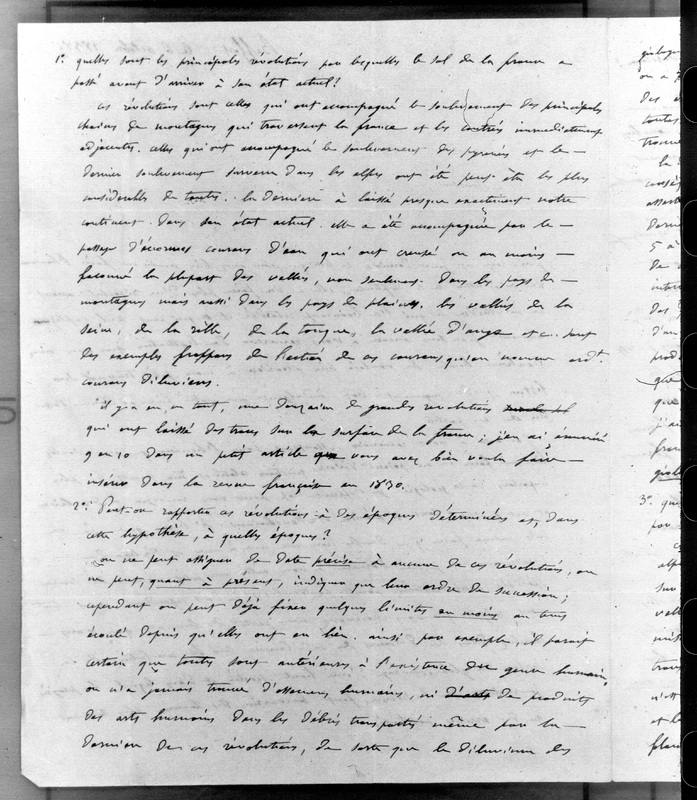 1o. quelles sont les principales révolutions par lesquelles le sol de la france a
passé avant d'arriver à son état actuel?
ces révolutions sont celles qui ont accompagné le soulèvement des principales
chaines de montagnes qui traversent la france et les contrées immédiatement
adjacentes. celles qui ont accompagné le soulevement des pyrénées et le —
dernier soulevement survenu dans les alpes ont été peut-être les plus
considérables de toutes. la dernière à laissé presque exactement notre
continent dans son état actuel. elle a été accompagnée par le —
passage d'énormes courans d'eau qui ont creusé ou au moins —
façonné la plupart des vallées, non seulement dans les pays de —
montagnes mais aussi dans les pays de plaines. les vallées de la
seine, de la rille, de la touques, la vallée d'auge et c. sont
des exemples frappans de l'action de ces courans qu'on nomme ordt.
courans diluviens.
il y a eu, en tout, une douzaine de grandes revolutions
qui ont laissé des traces sur la surface de la france; j'en ai énuméré
9 ou 10 dans un petit article que vous avez bien voulu faire —
insérer dans la revue française en 1830.
2o. Peut-on rapporter ces révolutions à des époques déterminées et, dans
cette hypothèse, à quelles époques?
on ne peut assigner de date précise à aucune de ces révolutions, on
ne peut, quant à présent, indiquer que leur ordre de succession;
cependant on peut déjà fixer quelques limites au moins au tems
écoulé depuis qu'elles ont eu lieu. ainsi par exemple, il parait
certain que toutes sont antérieures à l'existence du genre humain,
on n'a jamais trouvé d'ossemens humains, ni d'arts de produits
des arts humains dans les débris transportés même par la —
dernière de ces révolutions, de sorte que le diluvium des